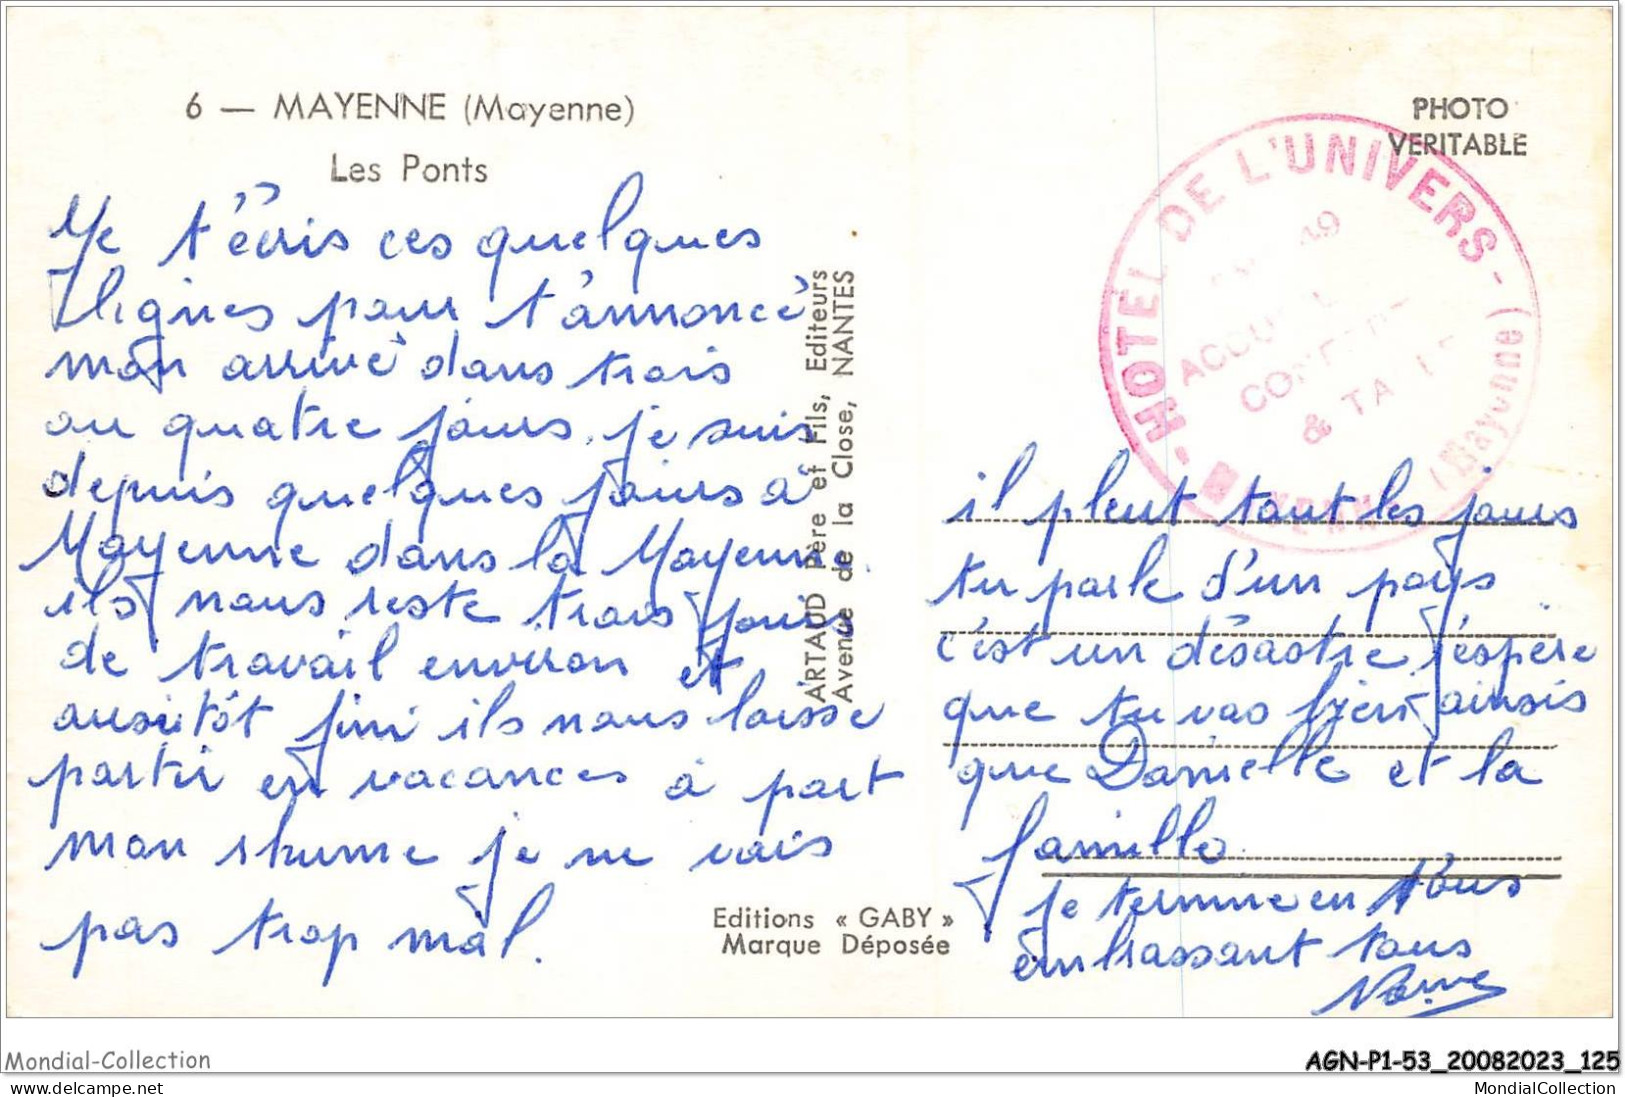 6 — MAYENNE (Mayenne)
Les Ponts
Je t'écris ces quelques
lignes pour t'annoncé
mon arrivé dans trois
ou quatre jours, je suis
depuis quelques jours à
Mayenne dans la Mayenne.
ils nous reste trois jours
de travail environ et
ausitôt fini ils nous laisse
partir en vacances à part
mon rhume je ne vais
pas trop mal.
ARTAUD Père et Fils, Editeurs
Avenue de la Close, NANTES
Editions « GABY »
Marque Déposée
PHOTO
VERITABLE
- HOTEL DE L'UNIVERS -
49
& TA
(Mayenne)
il pleut tout les jours
tu parle d'un pays
c'est un désastre, j'espère
que tu vas bien ainsis
que Danielle et la
famille.
je termine en vous
embrassant tous
Mondial-Collection
AGN-P1-53_20082023_125
www.delcampe.net
MondialCollection